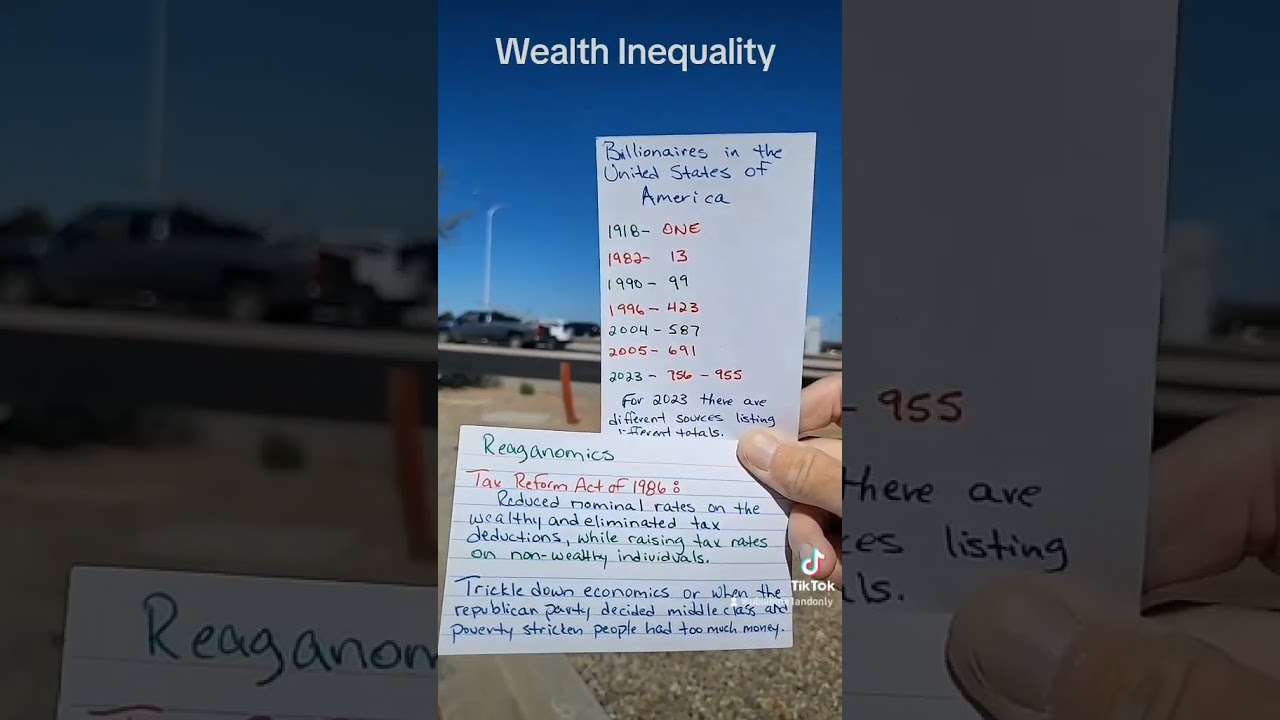 Wealth Inequality
Billionaires in the
United States of
America
1918- ONE
1982- 13
1990 - 99
1996 - 423
2004 - 587
2005 - 691
2023 - 756 - 955
For 2023 there are
different sources listing
different totals.
Reaganomics
Tax Reform Act of 1986:
Reduced nominal rates on the
wealthy and eliminated tax
deductions, while raising tax rates
on non-wealthy individuals.
Trickle down economics or when the
republican party decided middle class and
poverty stricken people had too much money.
TikTok
- 955
there are
listing
Reaganom